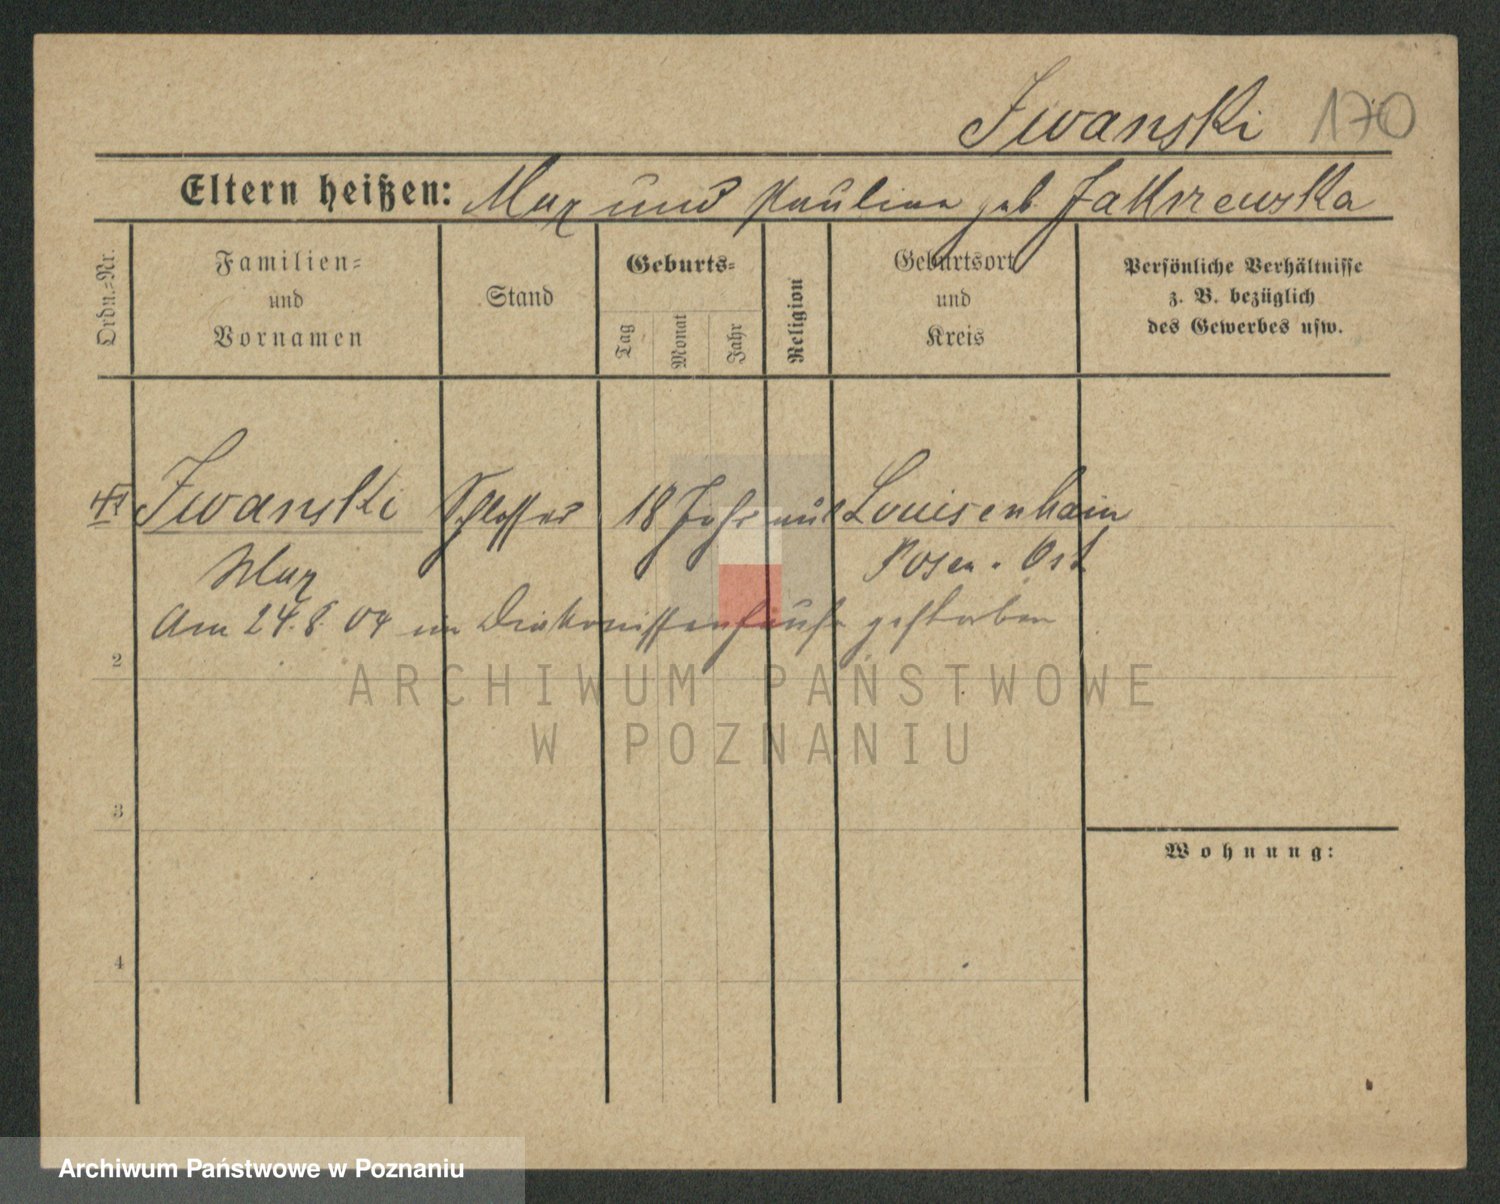 Iwanski 170
Eltern heißen: Max und Paulina geb Jakrzewska
Ordn.-Nr.
Familien-
und
Vornamen
Stand
Geburts-
Tag
Monat
Jahr
Religion
Geburtsort
und
Kreis
Persönliche Verhältnisse
z. B. bezüglich
des Gewerbes usw.
Iwanski Schlosser 18 Jahr aus Louisenhain
Max Posen. Ost
Am 24.8.04 im Diakonissenhause gestorben
2
ARCHIWUM PAŃSTWOWE
W POZNANIU
3
Wohnung:
4
Archiwum Państwowe w Poznaniu